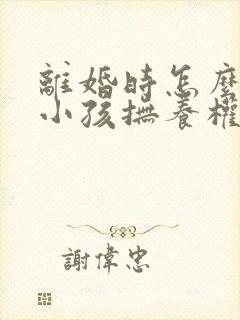 離婚時怎麼
小孩撫養權
謝偉忠